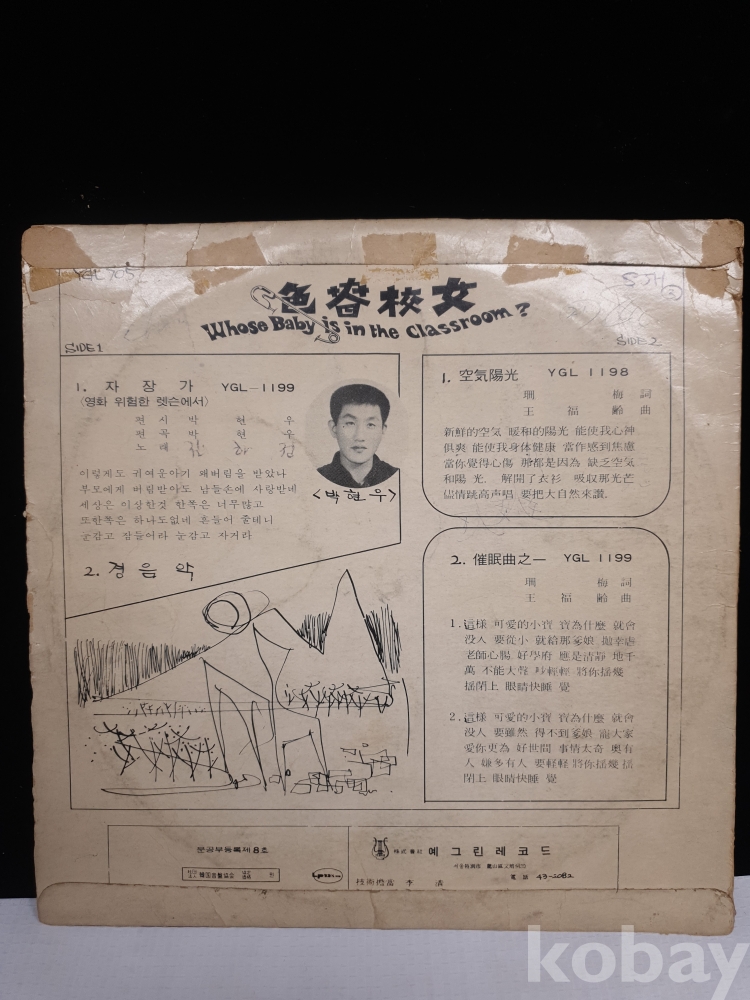 YGL 705
色春校女
Whose Baby is in the Classroom?
SIDE 1
SIDE 2
1. 자장가 YGL-1199
(영화 위험한 렛슨에서)
편시 박현우
편곡 박현우
노래
이렇게도 귀여운아기 왜버림을 받았나
부모에게 버림받아도 남들손에 사랑받네
세상은 이상한것 한쪽은 너무많고
또한쪽은 하나도없네 흔들어 줄테니
눈감고 잠들어라 눈감고 자거라
<박현우>
2. 경음악
1. 空気陽光 YGL 1198
珊梅詞
王福齢曲
新鮮的空気 暖和的陽光 能使我心神
俱爽 能使我身体健康 當作感到焦慮
當你覺得心傷 那都是因為 缺乏空気
和陽光. 解開了衣衫 吸収那光芒
儘情跳高声唱 要把大自然来讃
2. 催眠曲之一 YGL 1199
珊梅詞
王福齢曲
1. 這様 可愛的小寶 寶為什麼 就會
没人 要從小 就給那爹娘 拋
老師心腸 好學府 應是清静 地千
萬 不能大聲 吵輕輕 將你揺幾
揺閉上 眼睛快睡 覺
2. 這様 可愛的小寶 寶為什麼 就會
没人 要雖然 得不到爹娘 寵大家
愛你更為 好世間 事情太奇 奧有
人 嫌多有人 要輕輕 將你揺幾 揺
閉上 眼睛快睡 覺
문공부등록제8호
韓国音盤協会
株式會社 예그린레코드
電話 43-2082
技術擔當 李 清
kobay